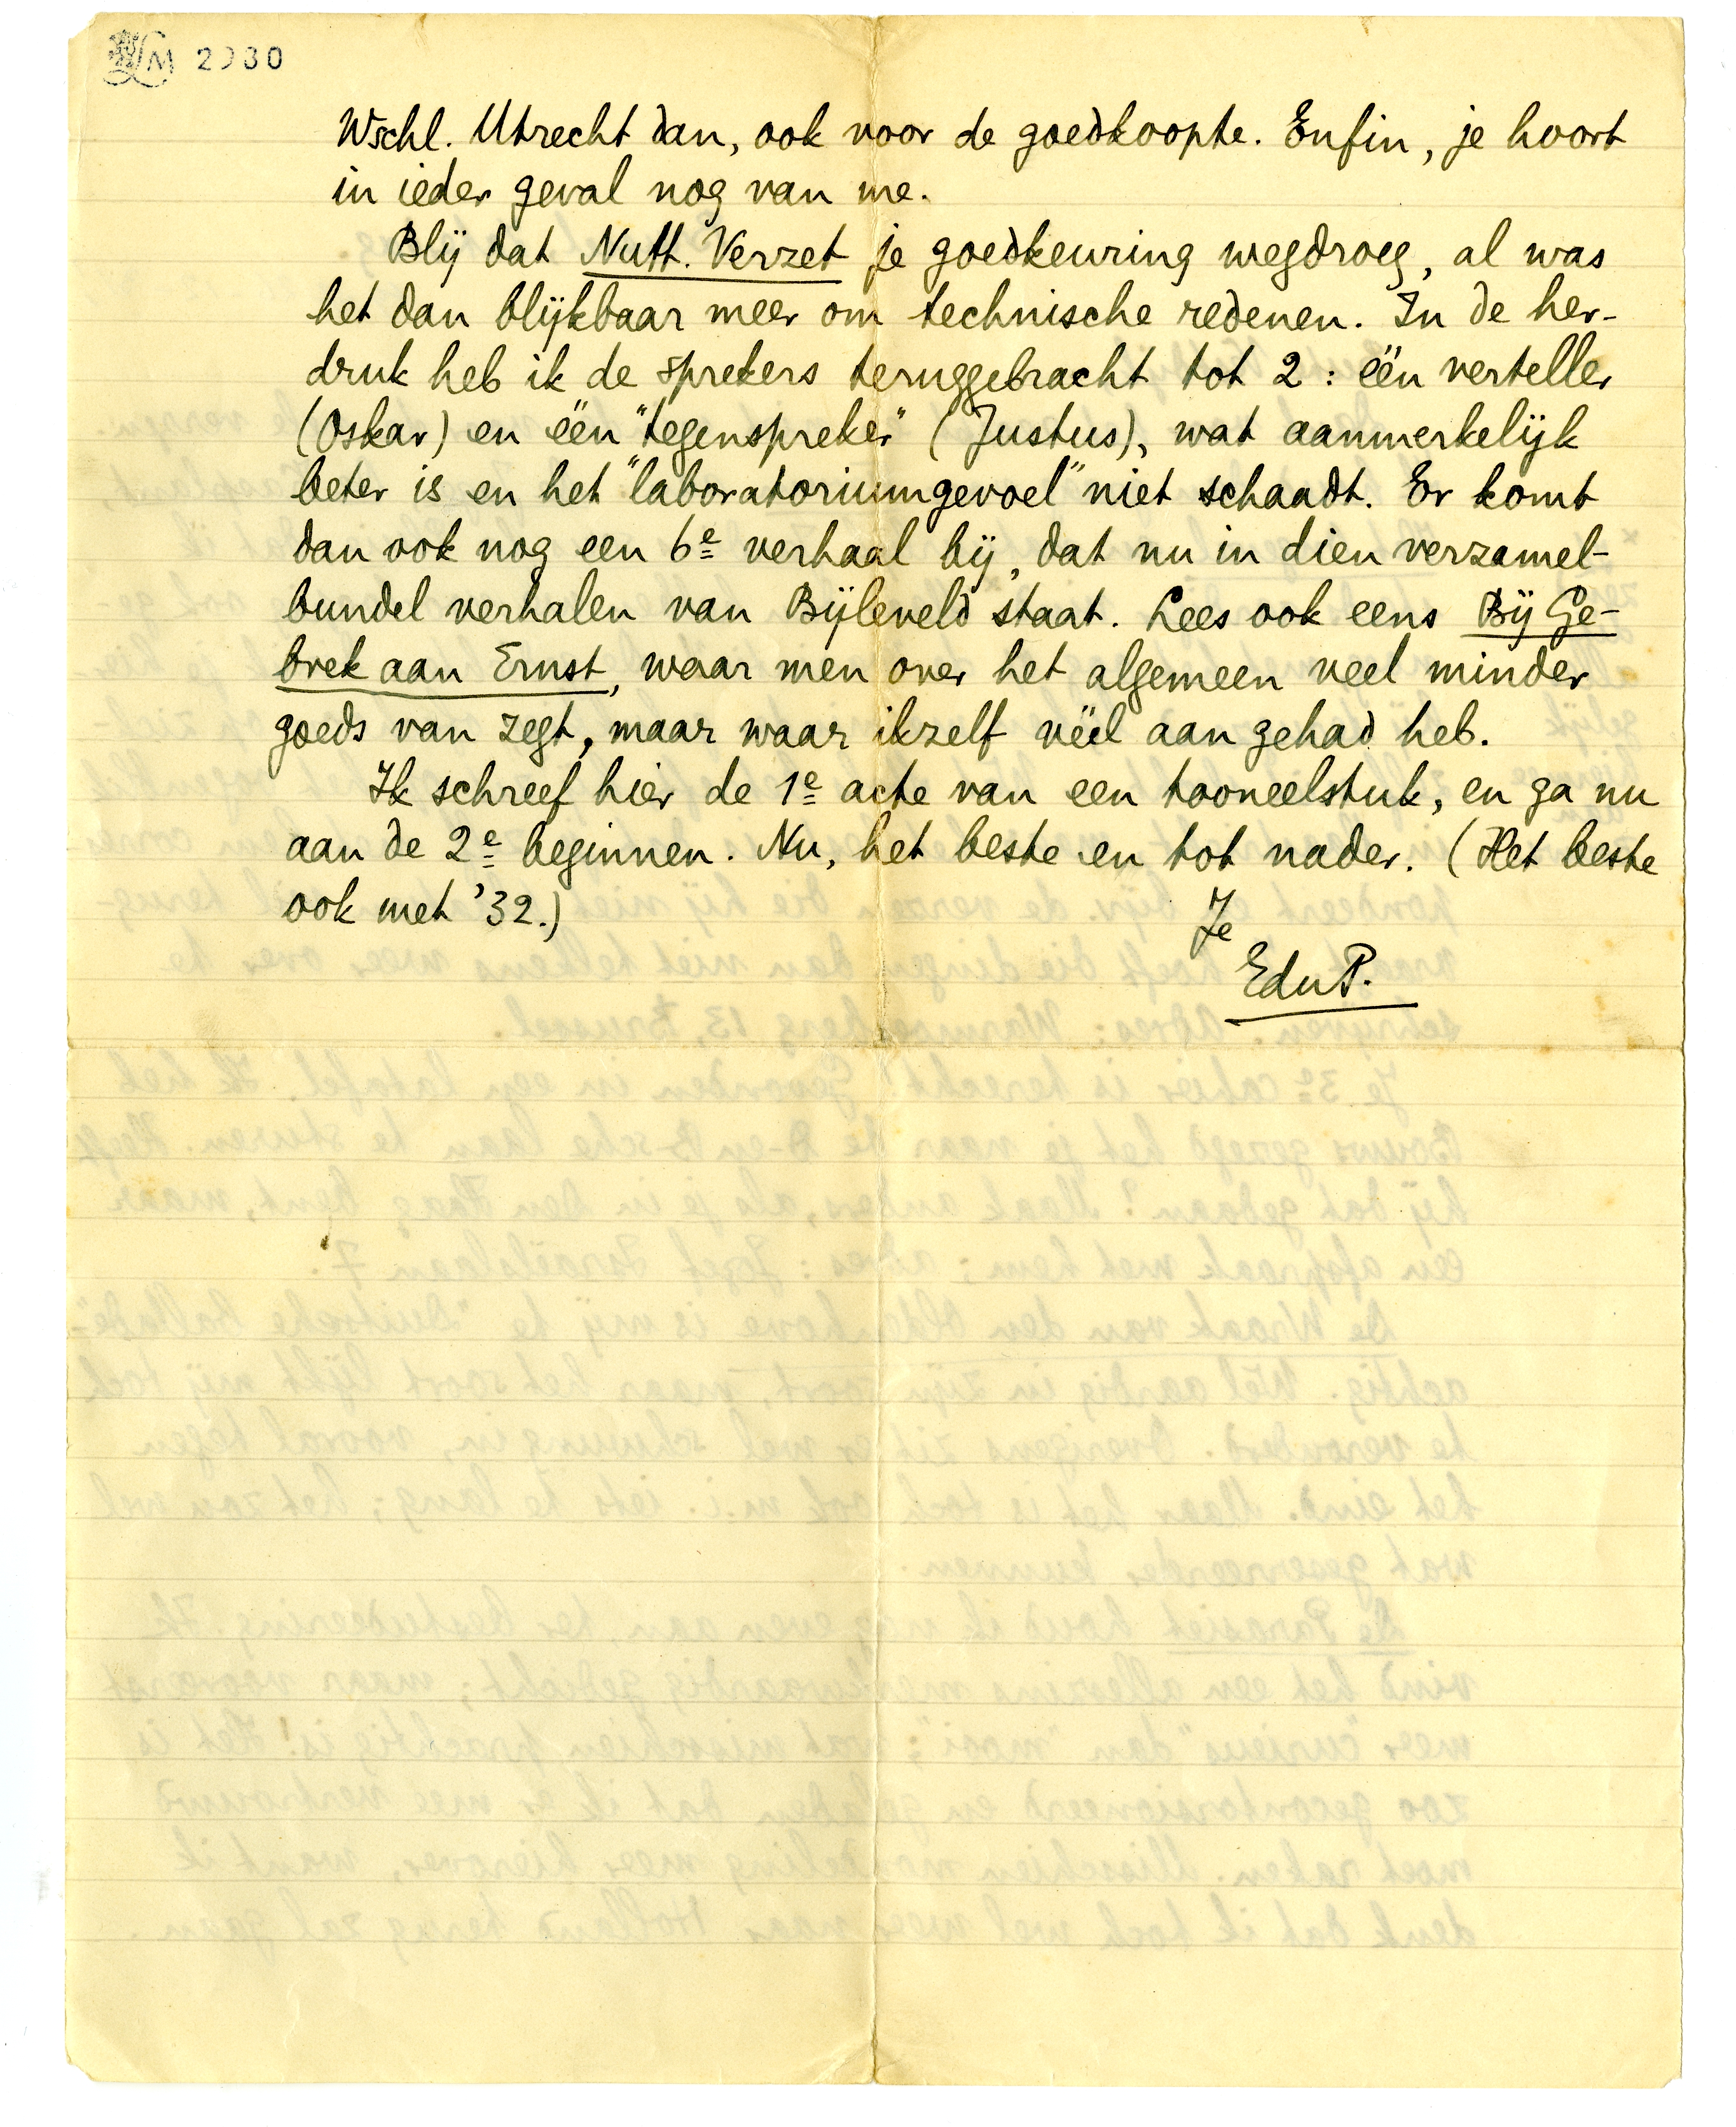 LM 2980
Wschl. Utrecht dan, ook voor de goedkoopte. Enfin, je hoort
in ieder geval nog van me.
Blij dat Nutt. Verzet je goedkeuring wegdroeg, al was
het dan blijkbaar meer om technische redenen. In de her-
druk heb ik de sprekers teruggebracht tot 2: één verteller
(Oskar) en één "tegenspreker" (Justus), wat aanmerkelijk
beter is en het "laboratoriumgevoel" niet schaadt. Er komt
dan ook nog een 6e verhaal bij, dat nu in dien verzamel-
bundel verhalen van Bijleveld staat. Lees ook eens Bij Ge-
brek aan Ernst, waar men over het algemeen veel minder
goeds van zegt, maar waar ikzelf véél aan gehad heb.
Ik schreef hier de 1e acte van een tooneelstuk, en ga nu
aan de 2e beginnen. Nu, het beste en tot nader. (Het beste
ook met '32.)
Je
EduP.